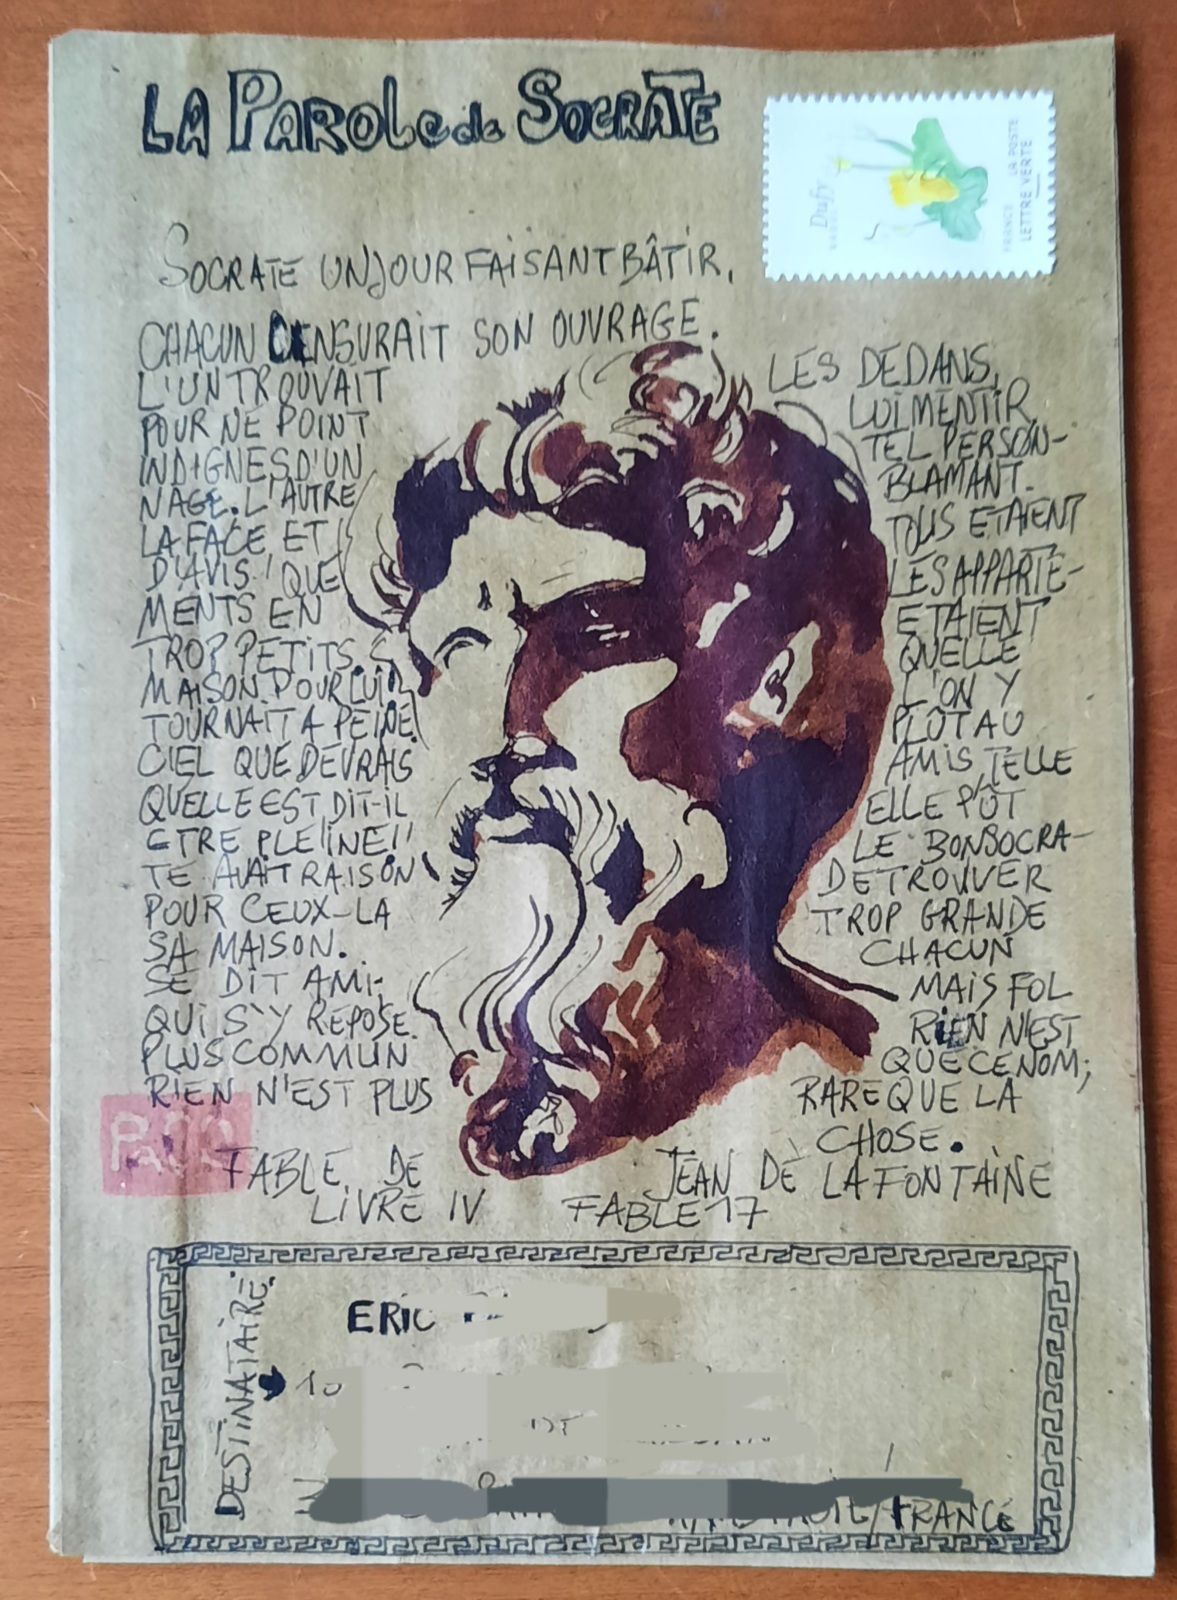 LA PAROLe de SOCRATE
Dufy
FRANCE LA POSTE
LETTRE VERTE
SOCRATE UN JOUR FAISANT BÂTIR,
CHACUN CENSURAIT SON OUVRAGE.
L'UN TROUVAIT LES DEDANS,
POUR NE POINT LUI MENTIR,
INDIGNES D'UN TEL PERSON-
NAGE. L'AUTRE BLAMANT.
LA FACE ET TOUS ETAIENT
D'AVIS, QUE LES APPARTE-
MENTS EN ETAIENT
TROP PETITS. QUELLE
MAISON POUR LUI L'ON Y
TOURNAIT A PEINE. PLÛT AU
CIEL QUE DEVRAIS AMIS, TELLE
QUELLE EST DIT-IL ELLE PÛT
ETRE PLEINE!! LE BON SOCRA-
TE AVAIT RAISON DE TROUVER
POUR CEUX-LA TROP GRANDE
SA MAISON. CHACUN
SE DIT AMI; MAIS FOL
QUI S'Y REPOSE. RIEN N'EST
PLUS COMMUN QUE CE NOM;
RIEN N'EST PLUS RARE QUE LA
CHOSE.
FABLE DE JEAN DE LA FONTAINE
LIVRE IV FABLE 17
DESTINATAIRE:
ERIC
10
/FRANCE